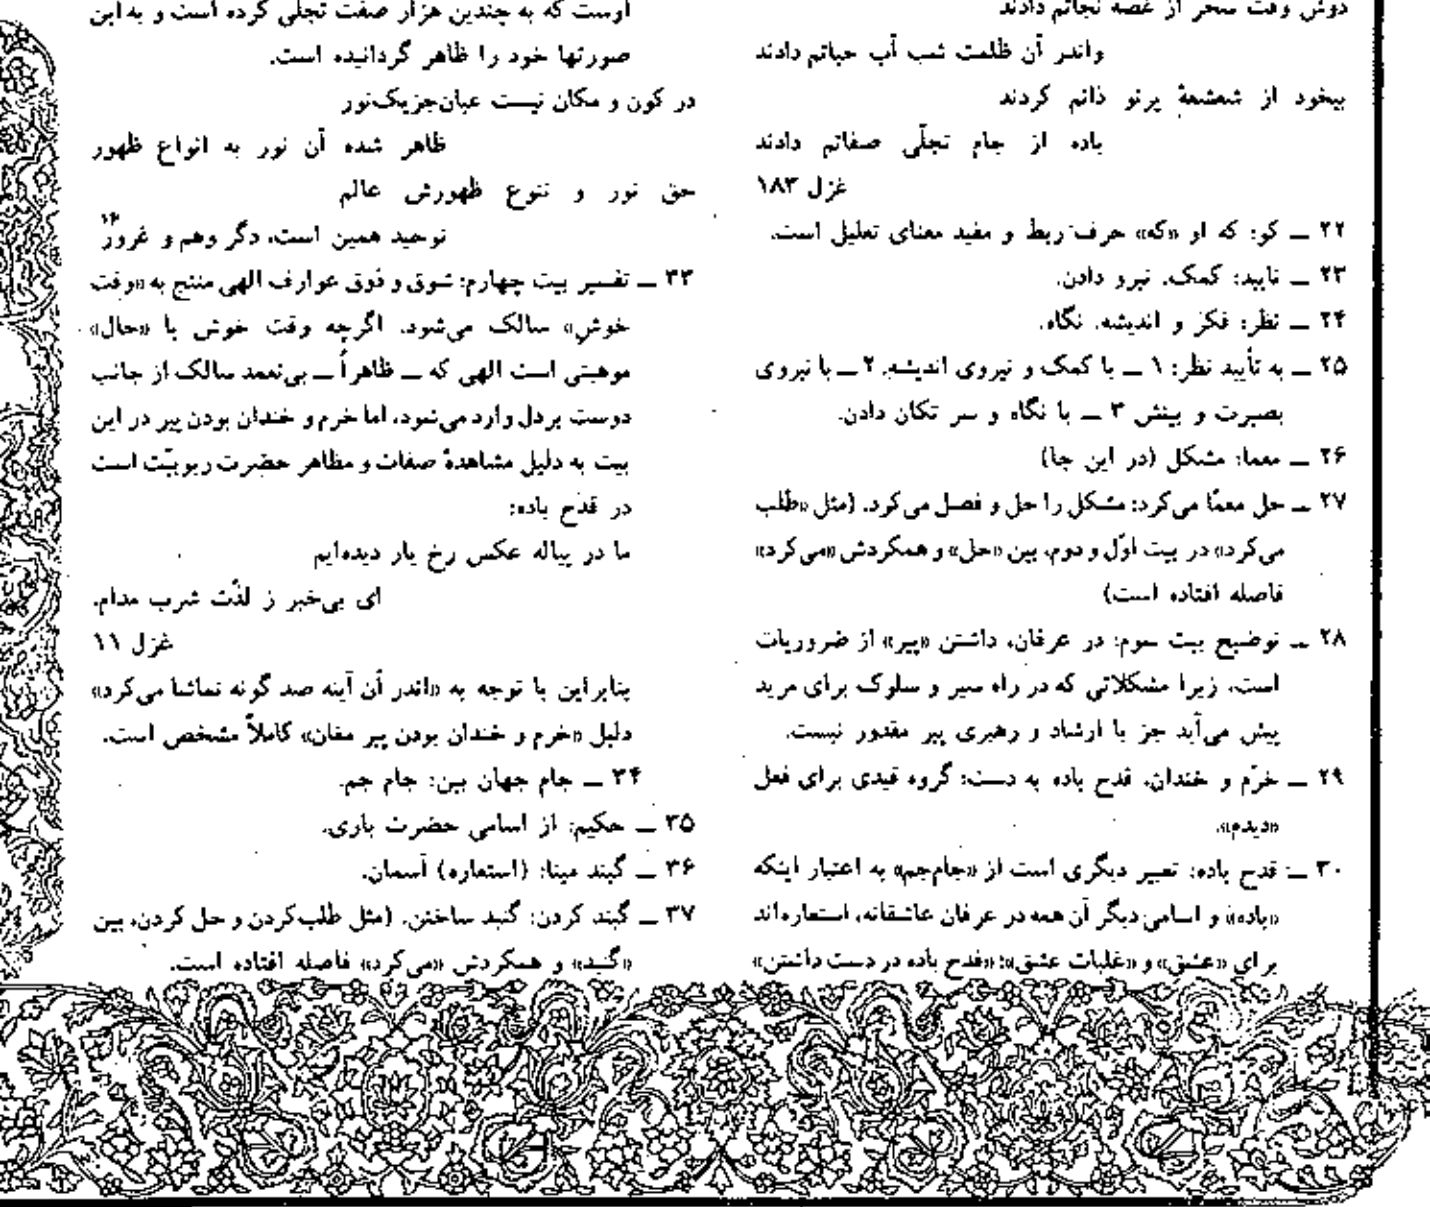 دوش وقت سحر از غصه نجاتم دادند
واندر آن ظلمت شب آب حیاتم دادند
بیخود از شعشعهٔ پرتو ذاتم کردند
باده از جام تجلّی صفاتم دادند
غزل ۱۸۳
۲۲ ــ کو: که او «که» حرف ربط و مفید معنای تعلیل است.
۲۳ ــ تایید: کمک، نیرو دادن.
۲۴ ــ نظر: فکر و اندیشه، نگاه.
۲۵ ــ به تأیید نظر: ۱ ــ با کمک و نیروی اندیشه. ۲ ــ با نیروی
بصیرت و بینش ۳ ــ با نگاه و سر تکان دادن.
۲۶ ــ معما: مشکل (در این جا)
۲۷ ــ حل معمّا می‌کرد: مشکل را حل و فصل می‌کرد. (مثل «طلب
می‌کرد» در بیت اوّل و دوم، بین «حل» و همکردش «می‌کرد»
فاصله افتاده است)
۲۸ ــ توضیح بیت سوم: در عرفان، داشتن «پیر» از ضروریات
است، زیرا مشکلاتی که در راه سیر و سلوک برای مرید
پیش می‌آید جز با ارشاد و رهبری پیر مقدور نیست.
۲۹ ــ خرّم و خندان، قدح باده به دست: گروه قیدی برای فعل
«دیدم».
۳۰ ــ قدح باده: تعبیر دیگری است از «جام‌جم» به اعتبار اینکه
«باده» و اسامی دیگر آن همه در عرفان عاشقانه، استعاره‌اند
برای «عشق» و «غلبات عشق»: «قدح باده در دست داشتن»
اوست که به چندین هزار صفت تجلی کرده است و به این
صورتها خود را ظاهر گردانیده است.
در کون و مکان نیست عیان‌جزیک‌نور
ظاهر شده آن نور به انواع ظهور
حق نور و تنوع ظهورش عالم
توحید همین است، دگر وهم و غرور<sup>۱۴</sup>
۳۳ ــ تفسیر بیت چهارم: شوق و ذوق عوارف الهی منتج به «وقت
خوش» سالک می‌شود. اگرچه وقت خوش یا «حال»
موهبتی است الهی که ــ ظاهراً ــ بی‌تعمد سالک از جانب
دوست بردل وارد می‌شود، اما خرم و خندان بودن پیر در این
بیت به دلیل مشاهدهٔ صفات و مظاهر حضرت ربوبیّت است
در قدح باده:
ما در پیاله عکس رخ یار دیده‌ایم
ای بی‌خبر ز لذّت شرب مدام.
غزل ۱۱
بنابراین با توجه به «اندر آن آینه صد گونه تماشا می‌کرد»
دلیل «خرم و خندان بودن پیر مغان» کاملاً مشخص است.
۳۴ ــ جام جهان بین: جام جم.
۳۵ ــ حکیم: از اسامی حضرت باری.
۳۶ ــ گنبد مینا: (استعاره) آسمان.
۳۷ ــ گنبد کردن: گنبد ساختن. (مثل طلب‌کردن و حل کردن، بین
«گنبد» و همکردش «می‌کرد» فاصله افتاده است.